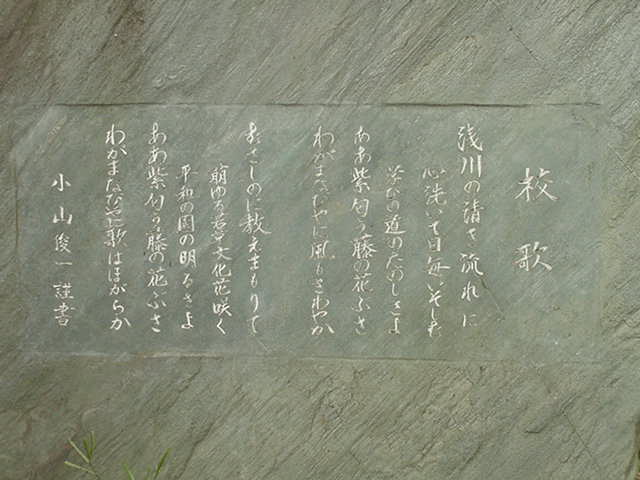 校歌
浅川の清き流れに
心洗いて日毎いそしむ
学びの道のたのしさよ
ああ紫匂う藤の花ぶさ
わがまなびやに風もさわやか
むさしのに教えまもりて
萌ゆる若草文化花咲く
平和の園の明るさよ
ああ紫匂う藤の花ぶさ
わがまなびやに歌はほがらか
小山俊一謹書